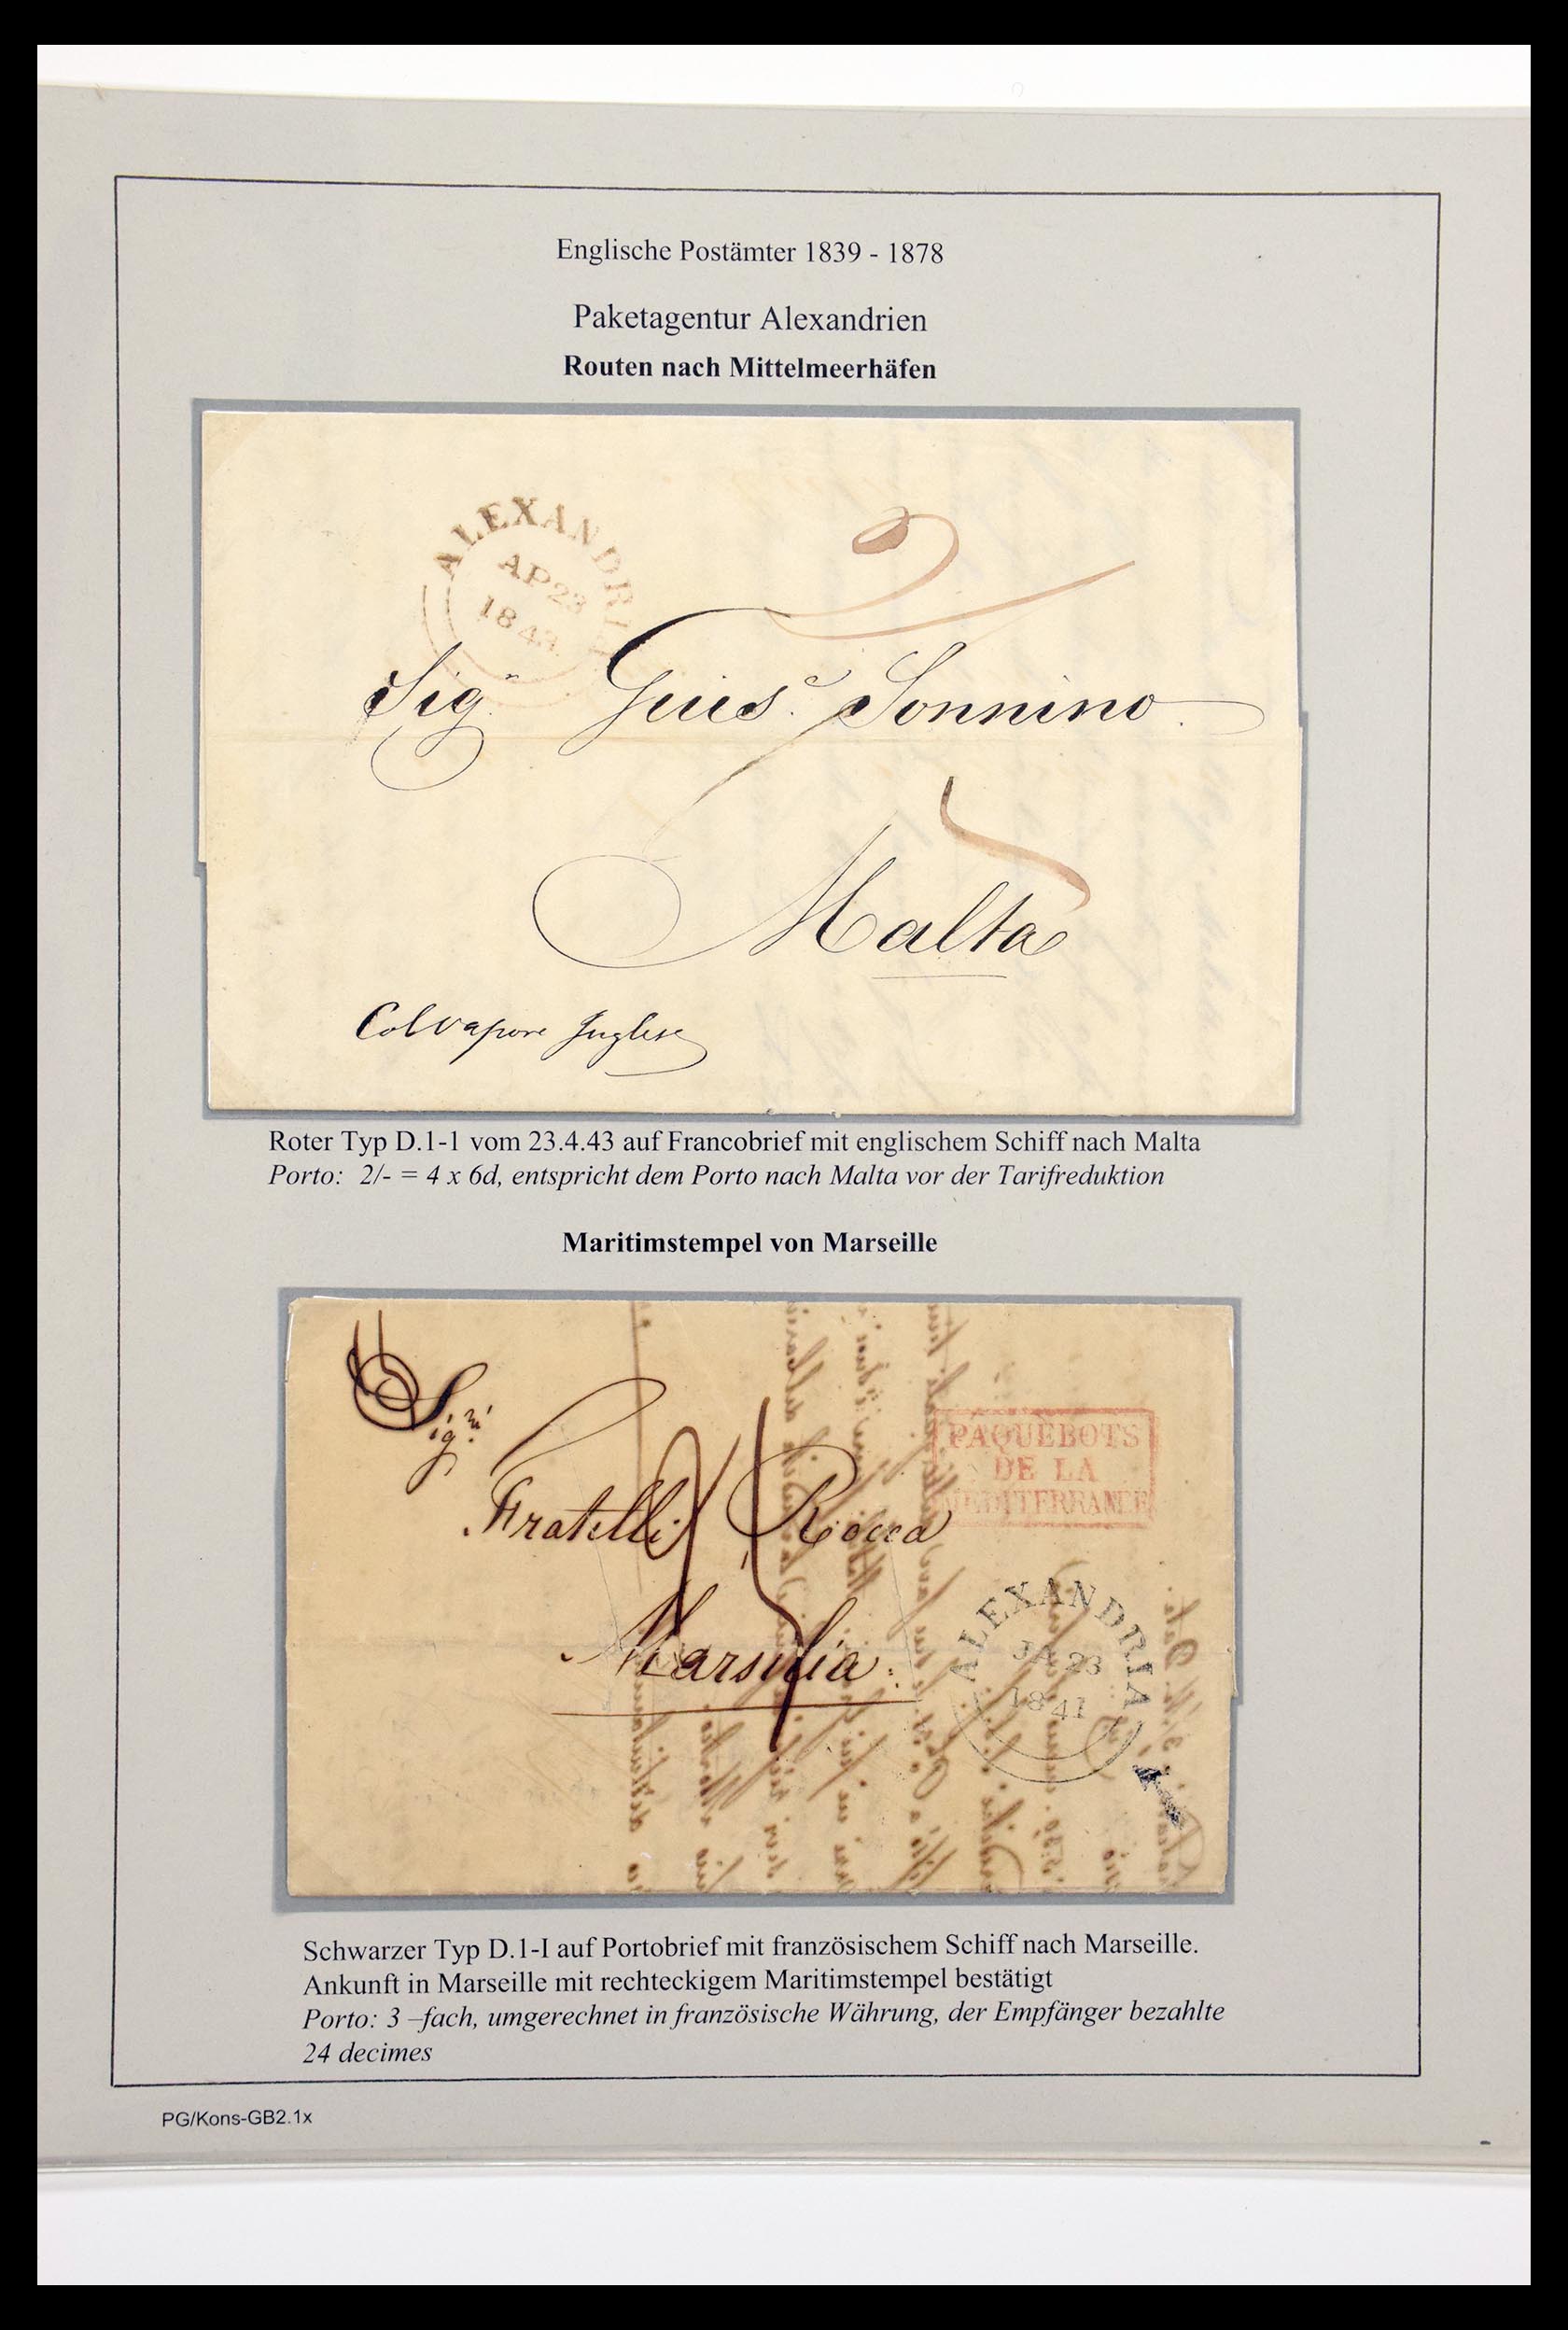 Englische Postämter 1839 - 1878
Paketagentur Alexandrien
Routen nach Mittelmeerhäfen
ALEXANDRIA
AP 23
1843
2
Sigr. Gius.e Sonnino
Malta
Col vapore Inglese
Roter Typ D.1-1 vom 23.4.43 auf Francobrief mit englischem Schiff nach Malta
Porto: 2/- = 4 x 6d, entspricht dem Porto nach Malta vor der Tarifreduktion
Maritimstempel von Marseille
Sig.ri
PAQUEBOTS
DE LA
MEDITERRANEE
Fratelli Rocca
Marsilia
ALEXANDRIA
JA 23
1841
Schwarzer Typ D.1-I auf Portobrief mit französischem Schiff nach Marseille.
Ankunft in Marseille mit rechteckigem Maritimstempel bestätigt
Porto: 3 –fach, umgerechnet in französische Währung, der Empfänger bezahlte
24 decimes
PG/Kons-GB2.1x